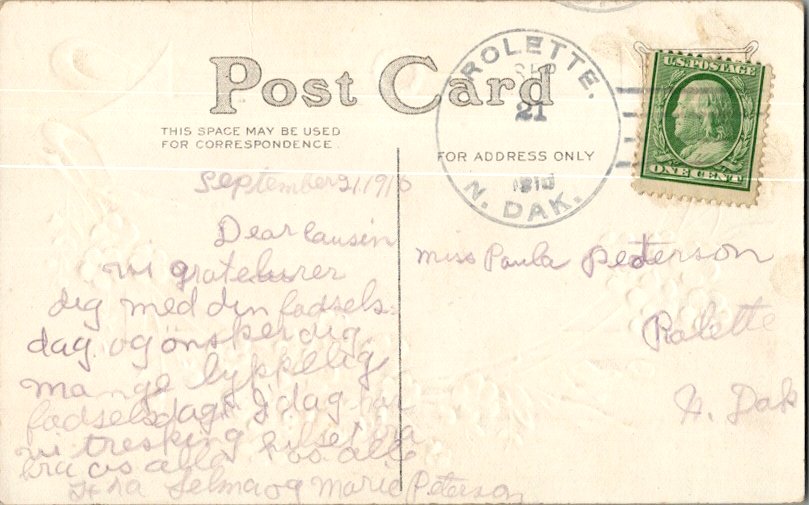 Post Card
THIS SPACE MAY BE USED
FOR CORRESPONDENCE.
FOR ADDRESS ONLY
ROLETTE.
SEP
21
1910
N. DAK.
U.S. POSTAGE
ONE CENT
September 21, 1910
Dear causin
vi gratelurer
dig med din fødsels-
dag og ønsker dig
mange lykkelig
fødselsdag. I dag har
vi tresking hilset fra
bra os alle hos alle
fra Selma og Marie Peterson
Miss Paula Peterson
Rolette
N. Dak